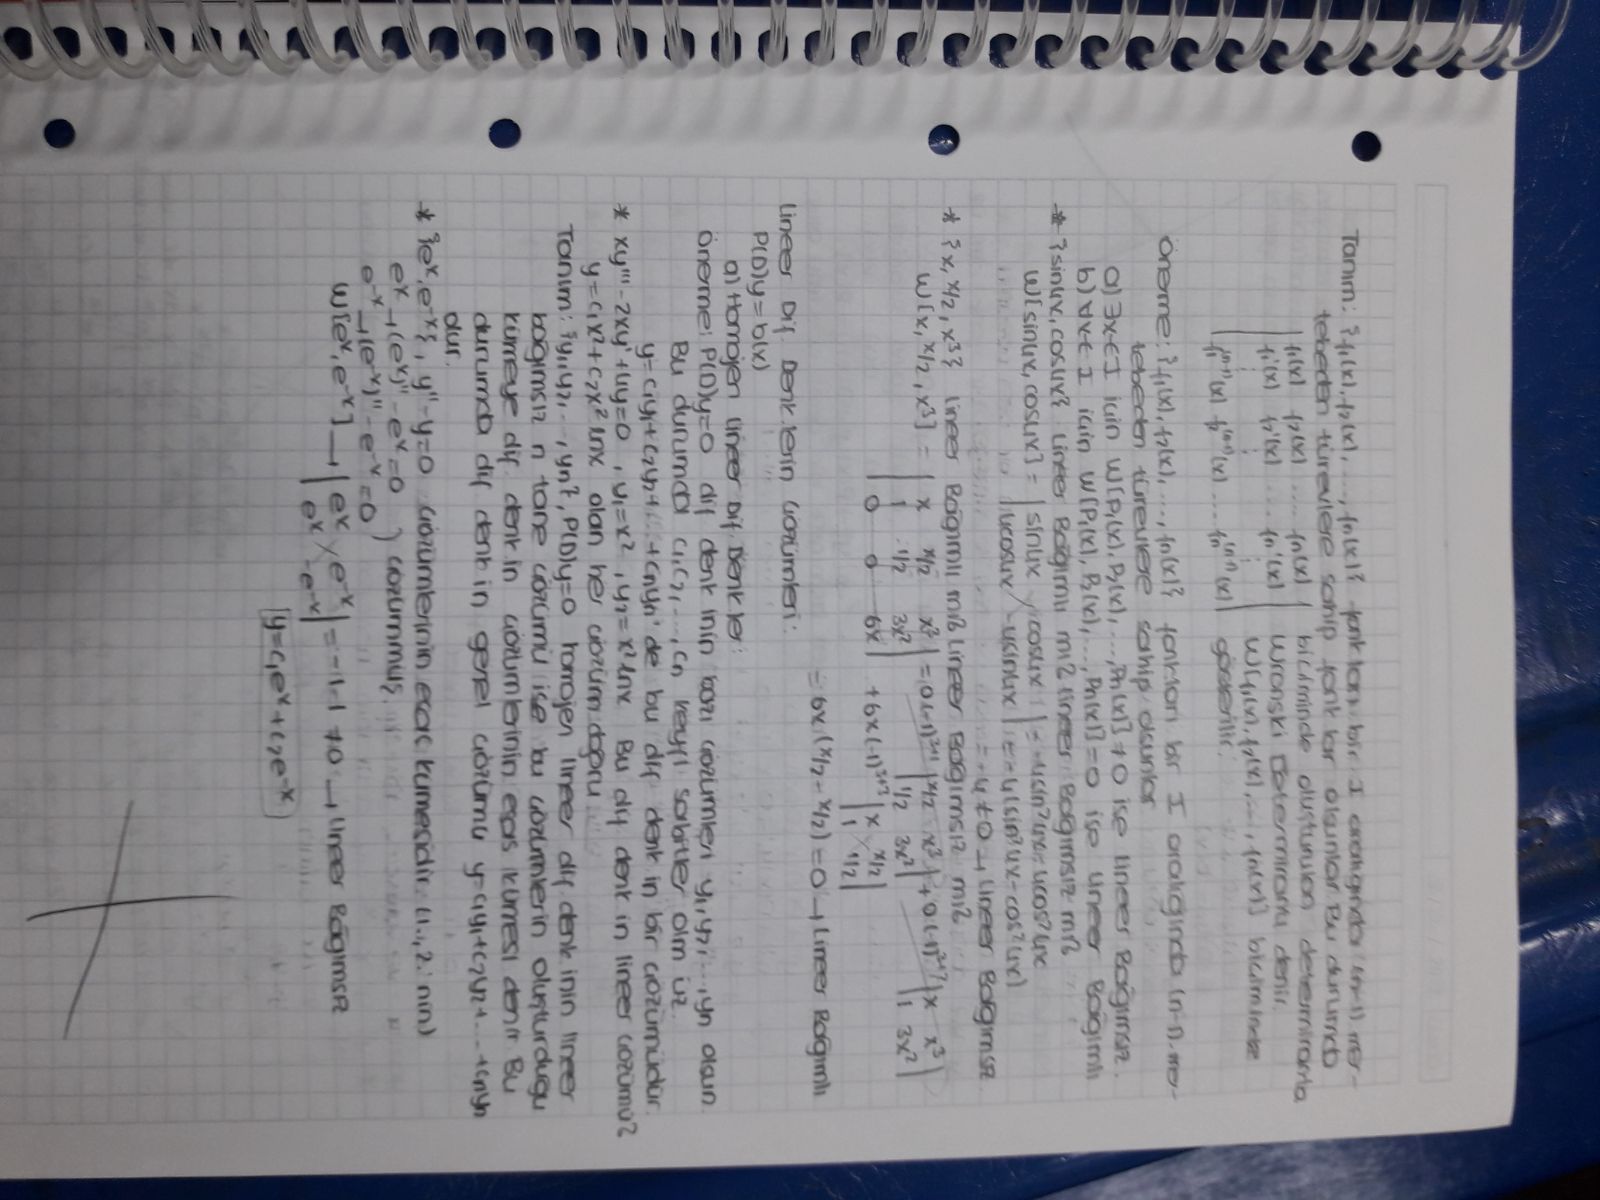 Tanım: {f₁(x), f₂(x), ..., fn(x)} fonkları bir I aralığında (n-1) mer-
tebeden türevlere sahip fonklar olsunlar. Bu durumda
| f₁(x) f₂(x) .... fn(x) | biçiminde oluşturulan determinanta
| f₁'(x) f₂'(x) .... fn'(x) | Wronski Determinantı denir.
| ⋮ ⋮ ⋮ | W[f₁(x), f₂(x), ..., fn(x)] biçiminde
| f₁⁽ⁿ⁻¹⁾(x) f₂⁽ⁿ⁻¹⁾(x) .... fn⁽ⁿ⁻¹⁾(x) | gösterilir.
Önerme: {f₁(x), f₂(x), ..., fn(x)} fonkları bir I aralığında (n-1). mer-
tebeden türevlere sahip olsunlar
a) ∃x∈I için W[P₁(x), P₂(x), ..., Pn(x)] ≠ 0 ise Lineer Bağımsız.
b) ∀x∈I için W[P₁(x), P₂(x), ..., Pn(x)] = 0 ise Lineer Bağımlı
* {sin4x, cos4x} Lineer Bağımlı mı? Lineer Bağımsız mı?
W[sin4x, cos4x] = | sin4x cos4x | = -4sin²4x - 4cos²4x
| 4cos4x -4sin4x | = -4(sin²4x - cos²4x)
= -4 ≠ 0 → Lineer Bağımsız
* {x, x/2, x³} Lineer Bağımlı mı? Lineer Bağımsız mı?
W[x, x/2, x³] = | x x/2 x³ | = 0(-1)³⁺¹ | x/2 x³ | + 0(-1)³⁺² | x x³ |
| 1 1/2 3x² | | 1/2 3x² | | 1 3x² |
| 0 0 6x | + 6x(-1)³⁺³ | x x/2 |
| 1 1/2 |
= 6x (x/2 - x/2) = 0 → Lineer Bağımlı
Lineer Dif. Denk.lerin Çözümleri:
P(D)y = b(x)
a) Homojen Lineer Dif. Denkler:
Önerme: P(D)y=0 dif denk inin bazı çözümleri y₁, y₂, ..., yn olsun.
Bu durumda c₁, c₂, ..., cn keyfi sabitler olm üz.
y = c₁y₁ + c₂y₂ + ... + cnyn' de bu dif denk in bir çözümüdür.
* xy''' - 2xy' + 4y = 0 , y₁ = x² , y₂ = x² lnx Bu dif denk in lineer çözümü?
y = c₁x² + c₂x² lnx olan her çözüm doğru.
Tanım: {y₁, y₂, ..., yn}, P(D)y=0 homojen lineer dif denk inin lineer
bağımsız n tane çözümü ise bu çözümlerin oluşturduğu
kümeye dif denk in çözümlerinin esas kümesi denir. Bu
durumda dif denk in genel çözümü y = c₁y₁ + c₂y₂ + ... + cnyn
dur.
* {eˣ, e⁻ˣ}, y'' - y = 0 çözümlerinin esas kümesidir. (1., 2. nin)
eˣ → (eˣ)'' - eˣ = 0 } çözümmüş.
e⁻ˣ → (e⁻ˣ)'' - e⁻ˣ = 0
W[eˣ, e⁻ˣ] → | eˣ e⁻ˣ | = -1-1 ≠ 0 → Lineer Bağımsız
| eˣ -e⁻ˣ |
y = c₁eˣ + c₂e⁻ˣ